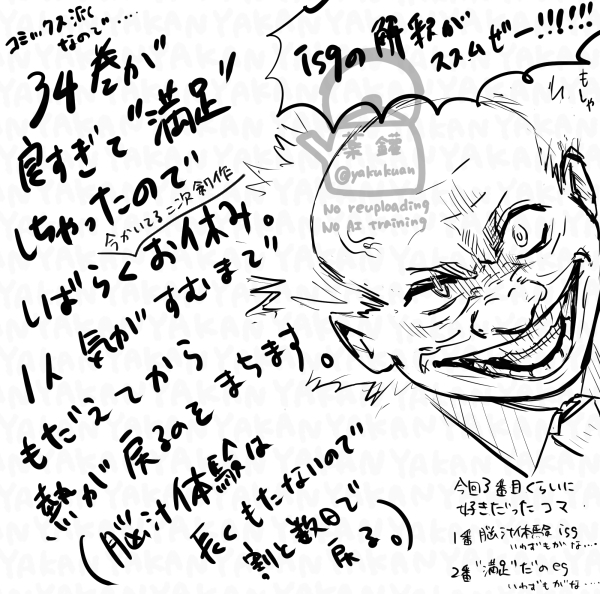 コミックス派
なので……
34巻が
良すぎて"満足"
しちゃったので
今かいてる二次創作
しばらくお休み。
1人気がすむまで
もだえてから
熱が戻るのをまちます。
(脳汁体験は
長くもたないので
割と数日で
戻る。)
isgの解釈が
ススムぜー!!!!!!
もしゃ
薬鑵
@yakukuan
No reuploading
No AI training
今回3番目くらいに
好きだったコマ
1番 脳汁体験isg
いわずもがな……
2番 "満足"だのeg
いわずもがな……